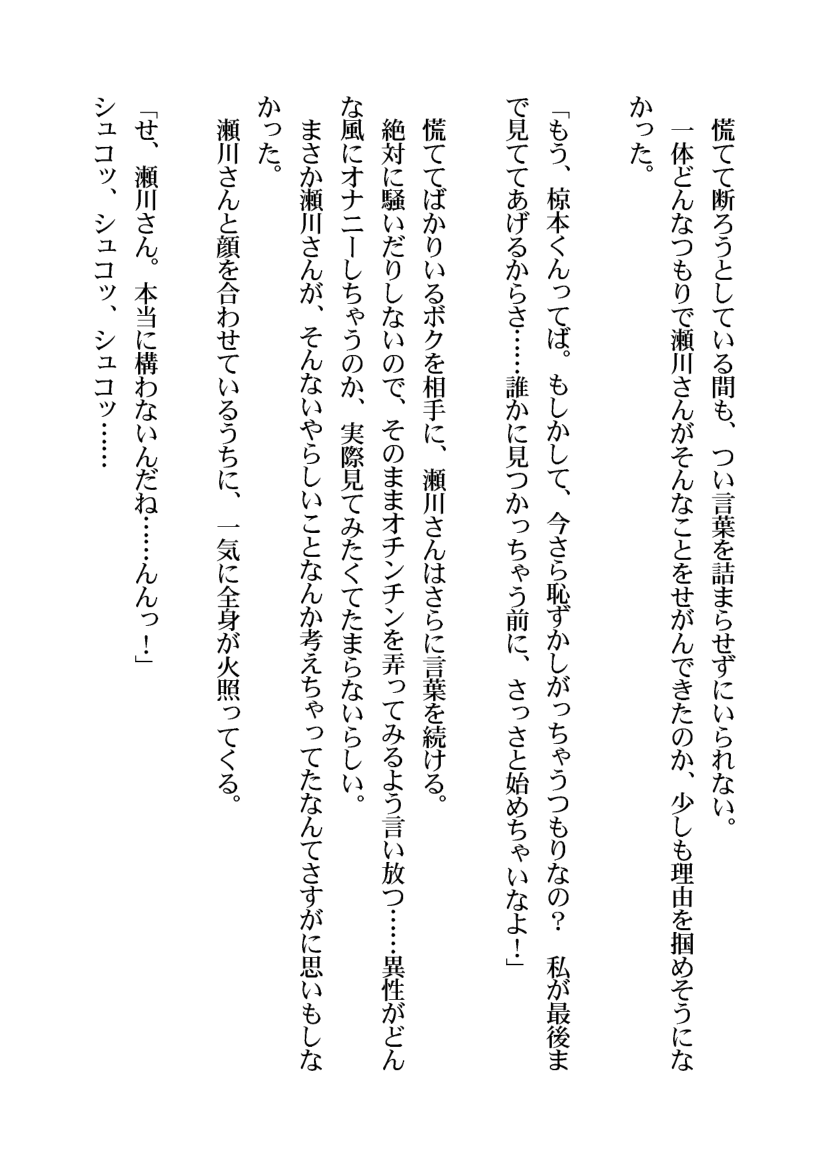 慌てて断ろうとしている間も、つい言葉を詰まらせずにいられない。
一体どんなつもりで瀬川さんがそんなことをせがんできたのか、少しも理由を掴めそうにな
かった。
「もう、椋本くんってば。もしかして、今さら恥ずかしがっちゃうつもりなの？　私が最後ま
で見ててあげるからさ……誰かに見つかっちゃう前に、さっさと始めちゃいなよ！」
慌ててばかりいるボクを相手に、瀬川さんはさらに言葉を続ける。
絶対に騒いだりしないので、そのままオチンチンを弄ってみるよう言い放つ……異性がどん
な風にオナニーしちゃうのか、実際見てみたくてたまらないらしい。
まさか瀬川さんが、そんないやらしいことなんか考えちゃってたなんてさすがに思いもしな
かった。
瀬川さんと顔を合わせているうちに、一気に全身が火照ってくる。
「せ、瀬川さん。本当に構わないんだね……んんっ！」
シュコッ、シュコッ、シュコッ……